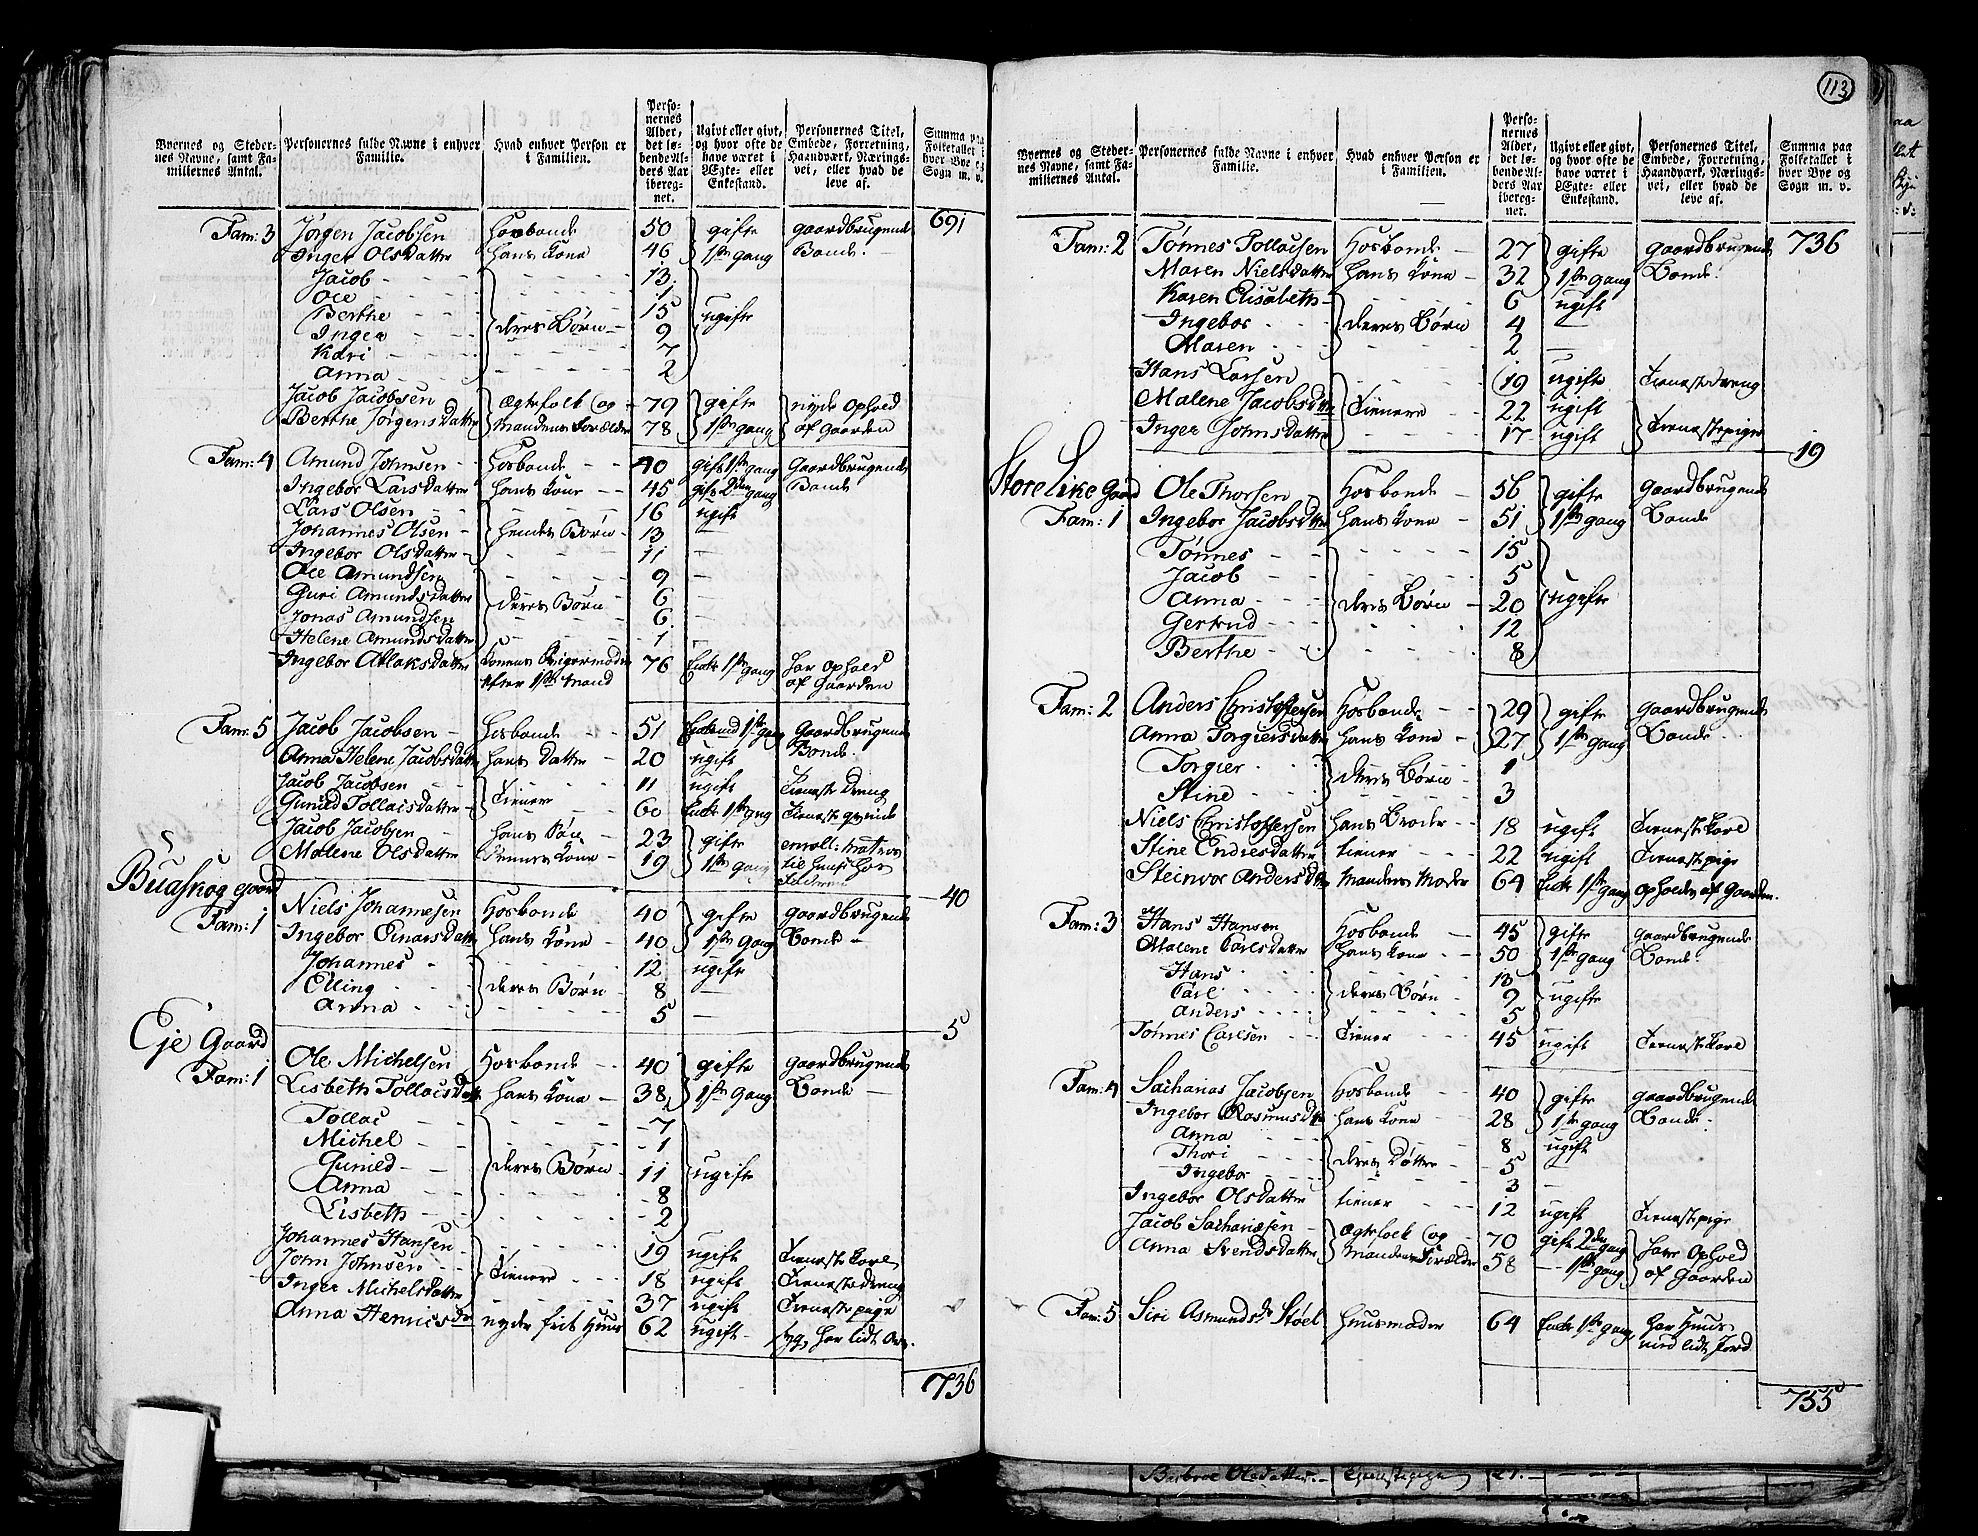 Byernes og Steder-
nes Navne, samt Fa-
miliernes Antal.
Personernes fulde Navne i enhver
Familie.
Hvad enhver Person er
i Familien.
Perso-
nernes
Alder,
det lø-
bende Al-
ders Aar
ibereg-
net.
Ugivt eller givt,
og hvor ofte de
have været i
Ægte- eller
Enkestand.
Personernes Titel,
Embede, Forretning,
Haandværk, Nærings-
vei, eller hvad de
leve af.
Summa paa
Folketallet i
hver Bye og
Sogn m. v.
Fam: 3 Jørgen Jacobsen Hosbonde 50 gifte gaardbrugende 691
Inger Olsdatter hans Kone 46 1ste gang Bonde
Jacob 13
Ole 1
Berthe 15 ugifte
Inger deres Børn 9
Kari 7
Anna 2
Jacob Jacobsen Ægtefolk og 79 gifte nyde Ophold
Berthe Jørgensdatter Mandens Forælder 78 1ste gang af Gaarden
Fam: 4 Amund Johnsen Hosbonde 40 gift 1ste gang Gaardbrugende
Ingebor Larsdatter hans Kone 45 gift 2den gang Bonde
Lars Olsen 16 ugift
Johannes Olsen hendes Børn 13 —
Ingebor Olsdatter 11
Ole Amundsen 9 —
Guri Amundsdatter deres Børn 6 —
Jonas Amundsen 6
Helene Amundsdatter 1 —
Ingebor Atlaksdatter Konens Svigermoder 76 Enke 1ste gang har Ophold
efter 1ste Mand af Gaarden
Fam: 5 Jacob Jacobsen Hosbonde 51 Enkemd 1ste gang Gaardbrugende
Anna Helene Jacobsdatter hans Datter 20 ugift Bonde
Jacob Jacobsen 11 ugift Tieneste Dreng
Gunild Tollaisdatter Tienere 60 Enke 1ste gang Tieneste qvinde
Jacob Jacobsen hans Søn 23 gifte enroll: matros
Malene Olsdatter dennes Kone 19 1ste gang til Huus hos
Faderen
40
Buaskog gaard
Fam: 1 Niels Johannesen Hosbonde 40 gifte gaardbrugende
Ingebor Einarsdatter hans Kone 40 1ste Gang Bonde
Johannes 12 ugifte
Elling deres Børn 8 —
Anna 5 —
5
Eje Gaard
Fam: 1 Ole Michelsen Hosbonde 40 gifte gaardbrugende
Lisbeth Tollaisdatt hans Kone 38 1ste Gang Bonde
Tollac 7
Michel 1
Gunild deres Børn 11 ugifte
Anna 8
Lisbeth 2
Johannes Hansen 19 ugift Tieneste Karl
John Johnsen Tienere 18 ugift Tienestedreng
Inger Michelsdatter 37 ugift Tieneste pige
Anna Henricsdr nyder frit Huus 62 ugift syg, har lidt
736
113
Byernes og Steder-
nes Navne, samt Fa-
miliernes Antal.
Personernes fulde Navne i enhver
Familie.
Hvad enhver Person er
i Familien.
Perso-
nernes
Alder,
det lø-
bende Al-
ders Aar
ibereg-
net.
Ugivt eller givt,
og hvor ofte de
have været i
Ægte- eller
Enkestand.
Personernes Titel,
Embede, Forretning,
Haandværk, Nærings-
vei, eller hvad de
leve af.
Summa paa
Folketallet i
hver Bye og
Sogn m. v.
Fam: 2 Tønnes Tollacsen Hosbonde 27 gifte gaardbrugende 736
Maren Nielsdatter hans Kone 32 1ste gang Bonde
Karen Elisabeth 6 ugift
Ingebor deres Børn 4 —
Maren 2 —
Hans Larsen 19 ugift Tienestedreng
Malene Jacobsdtr Tienere 22 ugift
Inger Johnsdatter 17 ugift Tienestepiger
19
Store Like Gaard
Ole Thorsen Hosbonde 56 gifte Gaardbrugende
Fam: 1 Ingebor Jacobsdtr hans Kone 51 1ste gang Bonde
Tønnes 15
Jacob 5
Anna deres Børn 20 ugifte
Gertrud 12
Berthe 8
Fam: 2 Anders Christophersen Hosbonde 29 gifte gaardbrugende
Anna Torgiersdatter hans Kone 27 1ste gang Bonde
Torgier deres Børn 1
Stine 3
Niels Christophersen hans Broder 18 ugift Tieneste Karl
Stine Endresdatter tiener 22 ugift Tienestepige
Steinvor Andersdtr Mandens Moder 64 Enke 1ste gang opholdes af Gaarden
Fam: 3 Hans Hansen Hosbonde 45 gifte gaardbrugende
Malene Carlsdatter hans Kone 50 1ste gang Bonde
Hans 13
Carl deres Børn 9 ugifte
Anders 5
Tønnes Carlsen Tiener 45 ugift Tieneste Karl
Fam: 4 Sacharias Jacobsen Hosbonde 40 gifte gaardbrugende
Ingebor Rasmusdtr hans Kone 28 1ste gang Bonde
Anna 8 ugift
Thori deres Døttre 5 —
Ingebor 3 —
Ingebor Olsdatter tiener 12 ugift Tienestepige
Jacob Sachariæsen Ægtefolk og 70 gift 2den gang have Ophold
Anna Svendsdatter Mandens Forældre 58 — 1ste gang af Gaarden
Fam: 5 Siri Asmundsdr Støel Huusmoder 64 Enke 1ste gang har Huus
med lidt Jord
755
Olsdatter Tienestepige 21.